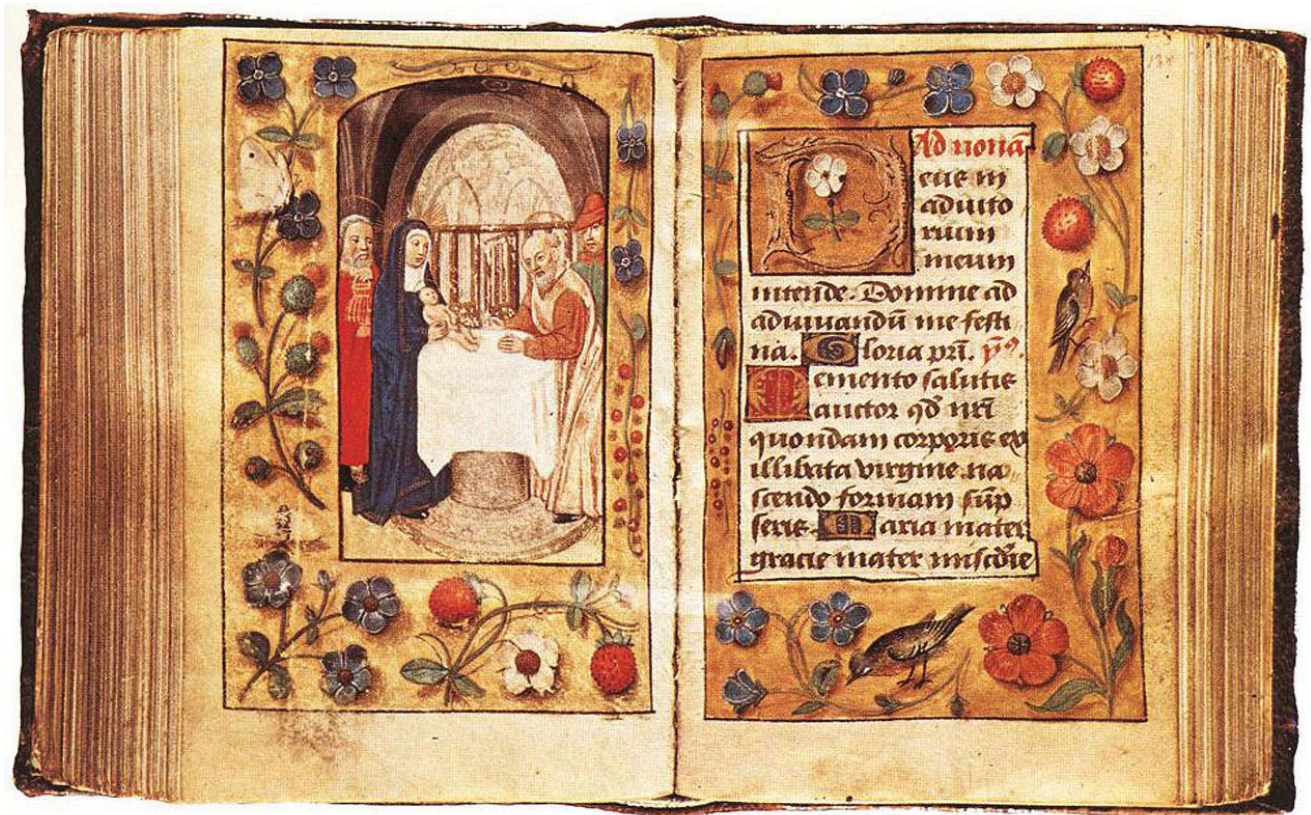 138
Ad nonā
Deus in
adiuto
rium
meum
intende. Domine ad
adiuuandū me festi
na. Gloria pri. ps.
Memento salutis
auctor qd nri
quondam corporis ex
illibata virgine na
scendo formam sūp
seris. Maria mater
gracie mater miscdie